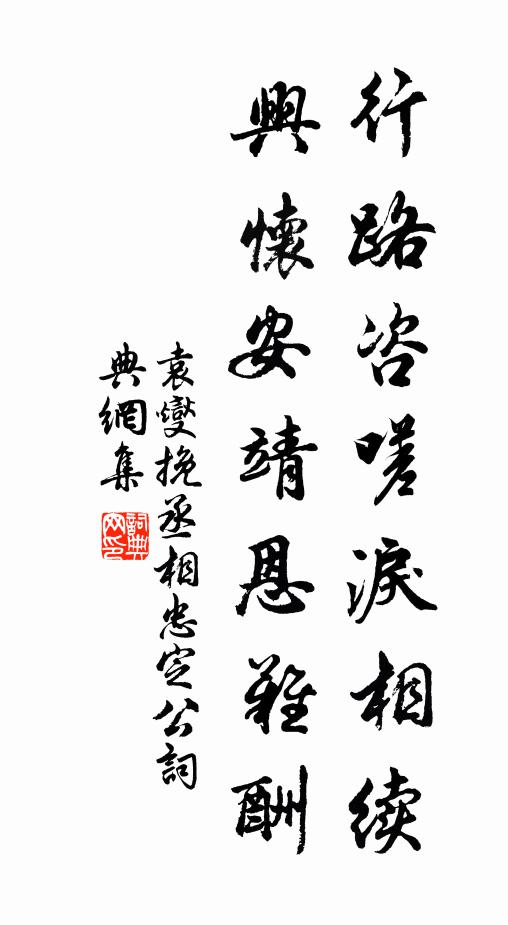 行路咨嗟淚相续
興懷安靖恩難酬
袁燮挽丞相忠定公詞
典網集
詞典網印